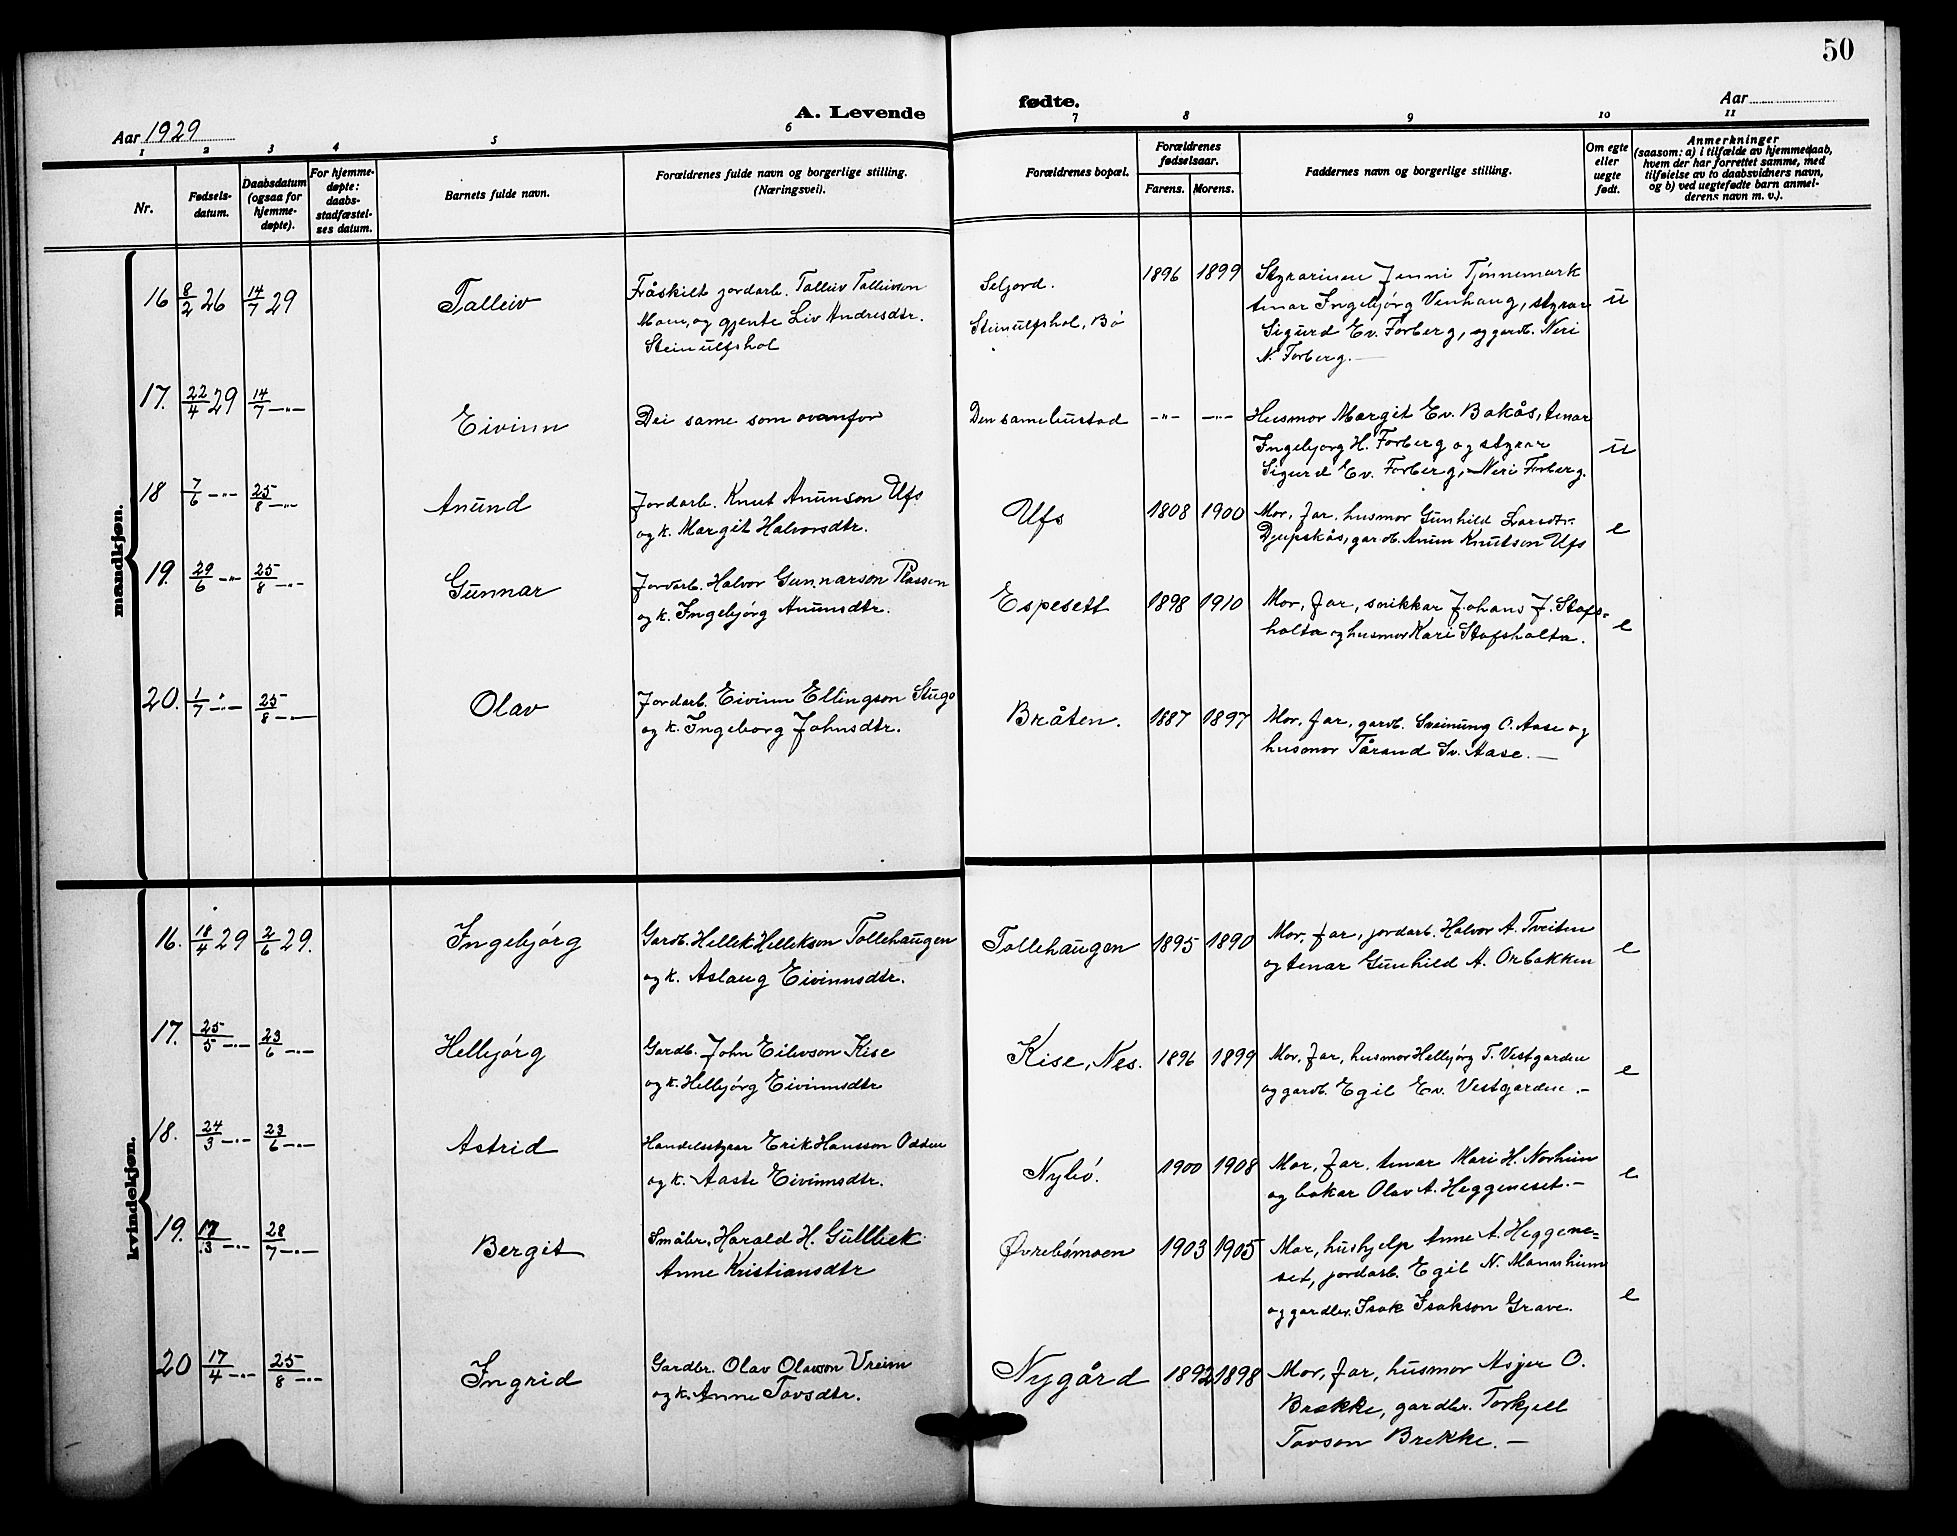 50
A. Levende fødte.
Aar 1929
Aar
1 2 3 4 5 6 7 8 9 10 11
Nr.
Fødsels-
datum.
Daabsdatum
(ogsaa for
hjemme-
døpte).
For hjemme-
døpte:
daabs-
stadfæstel-
ses datum.
Barnets fulde navn.
Forældrenes fulde navn og borgerlige stilling.
(Næringsvei).
Forældrenes bopæl.
Forældrenes
fødselsaar.
Farens. Morens.
Faddernes navn og borgerlige stilling.
Om egte
eller
uegte
født.
Anmerkninger
(saasom: a) i tilfælde av hjemmedaab,
hvem der har forrettet samme, med
tilføielse av to daabsvidners navn,
og b) ved uegtefødte barn anmel-
derens navn m. v.).
mandkjøn.
16 8/2 26 14/7 29 Talleiv
Fråskilt jordarb. Talleiv Talleivson
Moen, og gjente Liv Andresdtr.
Steinulfshol
Seljord.
Steinulfshol, Bø
1896 1899
Styrarinne Jenni Tjønnemark
tenar Ingebjørg Venhaug, styrar
Sigurd Ev. Forberg, og gardb. Neri
N. Forberg. —
u
17. 22/4 29 14/7 —"— Eivinn
Dei same som ovanfor
Den same bustad —"— —"—
Husmor Margit Ev. Bakås, tenar
Ingebjorg H. Forberg og styrar
Sigurd Ev. Forberg, Neri Forberg.
u
18 7/6 —"— 25/8 —"— Anund
Jordarb. Knut Anunson Ufs
og k. Margit Halvorsdtr.
Ufs 1808 1900
Mor, far, husmor Gunhild Larsdtr.
Djupskås, gardb. Anun Knutson Ufs
e
19. 29/6 —"— 25/8 —"— Gunnar
Jordarb. Halvor Gunnarson Plassen
og k. Ingebjørg Anunsdtr.
Espesett 1898 1910
Mor, far, snikkar Johans J. Stafs-
holta og husmor Kari Stafsholta.
e
20. 1/7 —"— 25/8 —"— Olav
Jordarb. Eivinn Ellingson Stugo
og k. Ingeborg Johnsdtr.
Bråten. 1887 1897
Mor, far, gardb. Sveinung O. Aase og
husmor Tårand Sv. Aase. —
kvindekjøn.
16. 18/4 29 2/6 29. Ingebjórg
Gardb. Hellek Hellekson Tollehaugen
og k. Aslaug Eivinnsdtr.
Tollehaugen 1895 1890
Mor, far, jordarb. Halvor A. Tveiten
og tenar Gunhild A. Orbakken
e
17. 25/5 —"— 23/6 —"— Helbjórg
Gardb. John Eilevson Kise
og k. Helbjórg Eivinnsdtr
Kise, Nes. 1896 1899
Mor, far, husmor Helbjórg T. Vestgarden
og gardb. Egil Ev. Vestgarden. —
e
18. 24/3 —"— 23/6 —"— Astrid
Handelsstyrar Erik Hansson Odden
og k. Aaste Eivinnsdtr.
Nybó. 1900 1908
Mor, far, tenar Mari H. Norheim
og bakar Olav A. Heggeneset. —
e
19. 17/3 —"— 28/7 —"— Bergit
Småbr. Harald H. Gullbek
Anne Kristiansdtr
Øvrebómoen 1903 1905
Mor, hushjelp Anne A. Heggene-
set, jordarb. Egil N. Mannheim
og gardbr. Isak Isakson Grave.
e
20 17/4 —"— 25/8 —"— Ingrid
Gardbr. Olav Olavson Vreim
og k. Anne Tovsdtr.
Nygård 1892 1898
Mor, far, husmor Asjer O.
Brekke, gardbr. Torkjell
Tovson Brekke. —